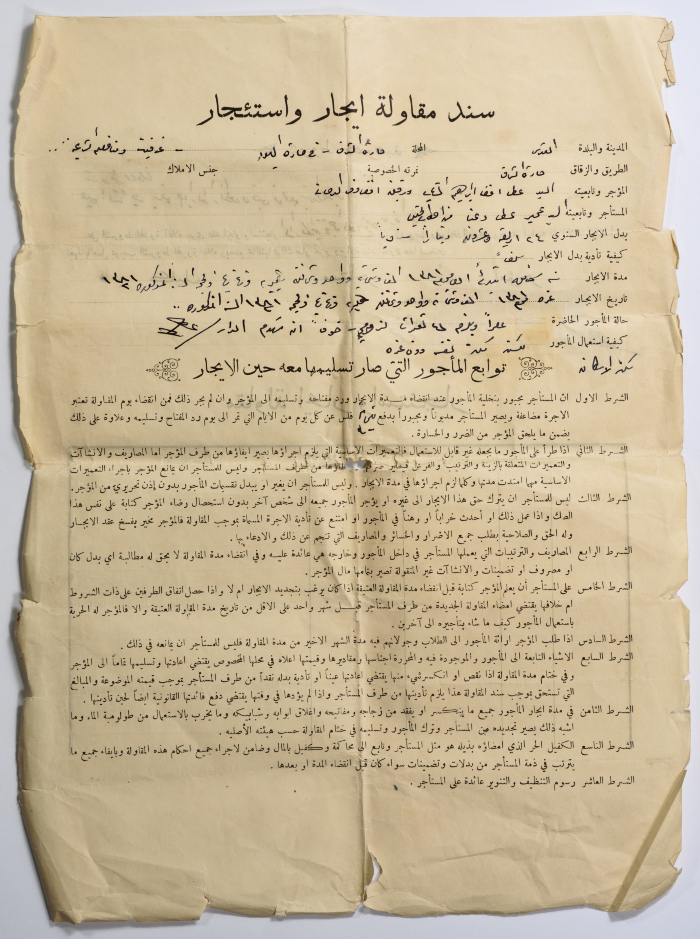 سند مقاولة ايجار واستئجار
المدينة والبلدة القدس المحلة حارة الشرف - في حارة اليهود - غرفتين ومنافعهم الشرعية
الطريق والزقاق حارة الشرف نمرته الخصوصية جنس الاملاك
المؤجر وتابعيته السيد
المستأجر وتابعيته السيد
بدل الايجار السنوي ٢٤ اربعة وعشرون ديناراً
كيفية تأدية بدل الايجار سلفاً
مدة الايجار سنه كامله ابتداءً
تاريخ الايجار
حالة المأجور الحاضرة
كيفية استعمال المأجور
توابع المأجور التي صار تسليمها معه حين الايجار
الشرط الاول ان المستأجر مجبور بتخلية المأجور عند انقضاء مدة الايجار ورد مفتاحه وتسليمه الى المؤجر وان لم يجر ذلك فمن انقضاء يوم المقاولة تعتبر
الاجرة مضاعفة ويصير المستأجر مديوناً ومجبوراً بدفع فلس عن كل يوم من الايام التي تمر الى يوم رد المفتاح وتسليمه وعلاوة على ذلك
يضمن ما يلحق المؤجر من الضرر والخسارة .
الشرط الثاني اذا طرأ على المأجور ما يجعله غير قابل للاستعمال فالتعميرات الاساسية التي يلزم اجراؤها يصير ايفاؤها من طرف المؤجر اما المصاريف والانشاآت
والتعميرات المتعلقة بالزينة والترتيب والفرعي فيصير من طرف المستأجر وليس للمستأجر ان يمانع المؤجر باجراء التعميرات
الاساسية مهما امتدت مدتها وكما لزم اجراؤها في مدة الايجار . وليس للمستأجر ان يغير او يبدل تقسيمات المأجور بدون إذن تحريري من المؤجر.
الشرط الثالث ليس للمستأجر ان يترك حق هذا الايجار الى غيره او يؤجر المأجور جميعه الى شخص آخر بدون استحصال رضاء المؤجر كتابة على نفس هذا
الصك واذا عمل ذلك او أحدث خراباً او وهناً في المأجور او امتنع عن تأدية الاجرة المسماة بموجب المقاولة فالمؤجر مخير بفسخ عقد الايجار
وله الحق والصلاحية بطلب جميع الاضرار والخسائر والمصاريف التي تنجم عن ذلك والادعاء بها .
الشرط الرابع المصاريف والترتيبات التي يعملها المستأجر في داخل المأجور وخارجه هي عائدة عليه وفي انقضاء مدة المقاولة لا يحق له مطالبة اي بدل كان
او مصروف او تضمينات والانشاآت غير المنقولة تصير بتمامها مال المؤجر .
الشرط الخامس على المستأجر أن يعلم المؤجر كتابة قبل انقضاء مدة المقاولة العتيقة اذا كان يرغب بتجديد الايجار ام لا واذا حصل اتفاق الطرفين على ذات الشروط
ام خلافها يقتضي امضاء المقاولة الجديدة من طرف المستأجر قبل شهر واحد على الاقل من تاريخ مدة المقاولة العتيقة والا فالمؤجر له الحرية
باستعمال المأجور كيف ما شاء بتأجيره الى آخرين .
الشرط السادس اذا طلب المؤجر اراءة المأجور الى الطلاب وجولانهم فيه مدة الشهر الاخير من مدة المقاولة فليس للمستأجر ان يمانعه في ذلك .
الشرط السابع الاشياء التابعة الى المأجور والموجودة فيه والمحررة اجناسها ومقاديرها وقيمتها اعلاه في محلها المخصوص يقتضي اعادتها وتسليمها تماماً الى المؤجر
وفي ختام مدة المقاولة اذا نقص او انكسر شيء منها يقتضي اعادتها عيناً او تأدية بدله نقداً من طرف المستأجر بموجب قيمته الموضوعة والمبالغ
التي تستحق بموجب سند المقاولة هذا يلزم تأديتها من طرف المستأجر واذا لم يؤدها في وقتها يقتضي دفع فائدتها القانونية ايضاً لحين تأديتها .
الشرط الثامن في مدة ايجار المأجور جميع ما ينكسر او يفقد من زجاجه ومفاتيحه واغلاق ابوابه وشبابيكه وما يخرب بالاستعمال من طولومبة الماء وما
اشبه ذلك يصير تجديده من المستأجر وترك المأجور وتسليمه في ختام المقاولة حسب هيئته الأصليه .
الشرط التاسع الكفيل الحر الذي امضاؤه بذيله هو مثل المستأجر وتابع الى محاكمة وكفيل بالمال وضامن لاجراء جميع احكام هذه المقاولة وبايفاء جميع ما
يترتب في ذمة المستأجر من بدلات وتضمينات سواء كان قبل انقضاء المدة او بعدها .
الشرط العاشر رسوم التنظيف والتنوير عائدة على المستأجر .